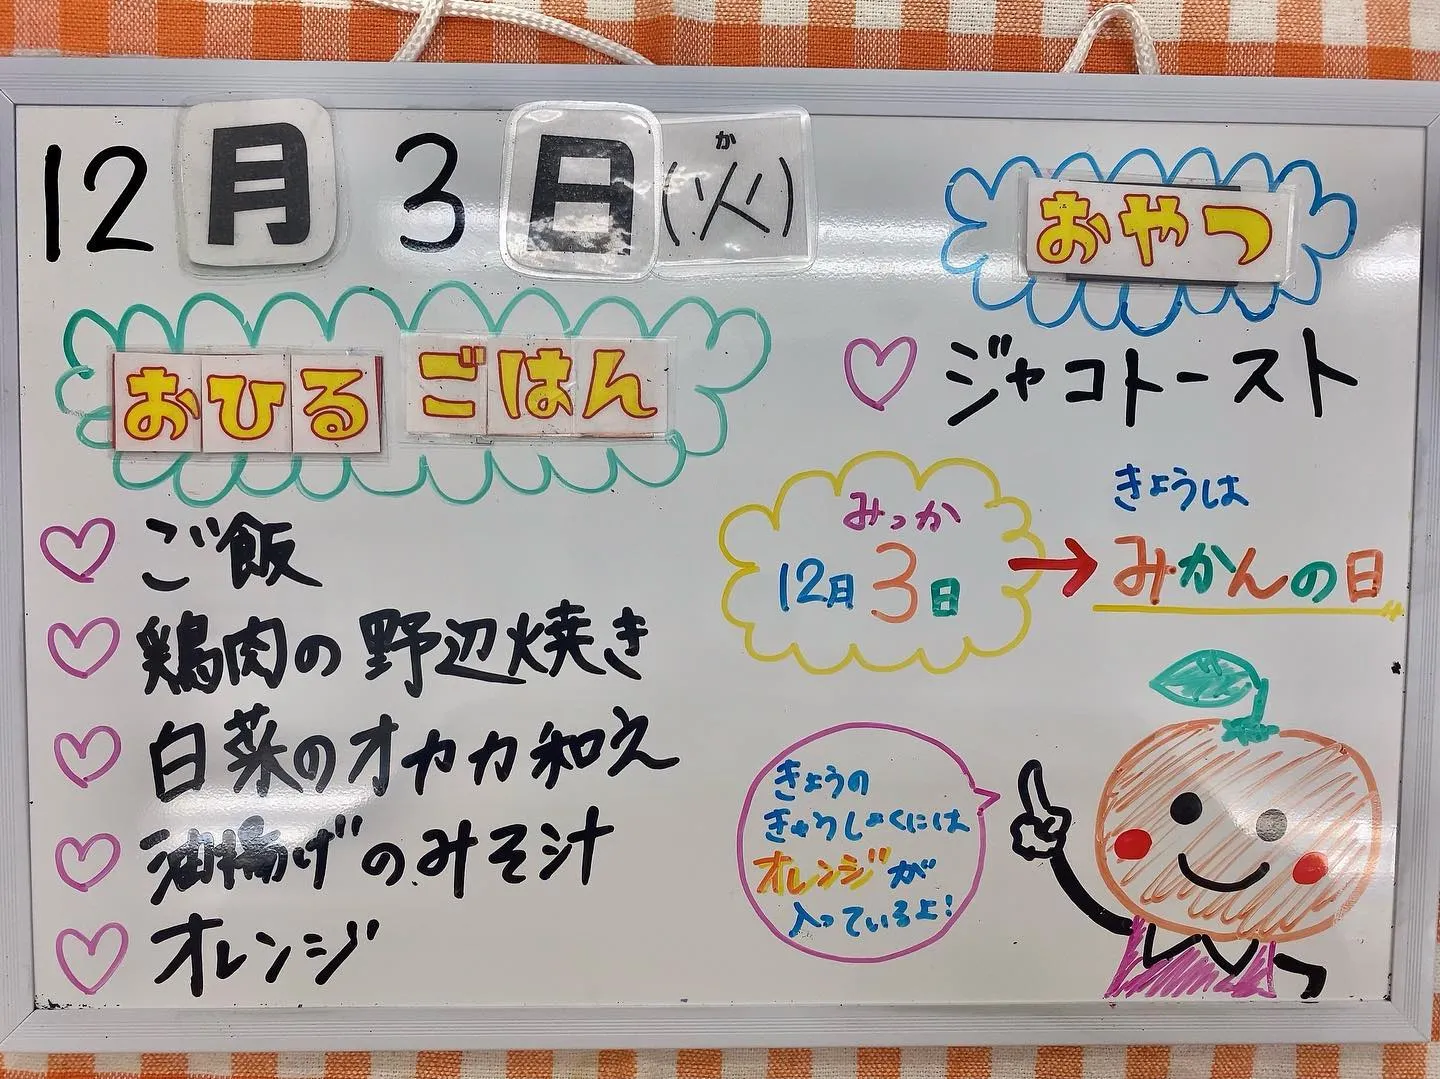 12月 3日(火)
か
おひるごはん
ご飯
鶏肉の野辺焼き
白菜のオカカ和え
油揚げのみそ汁
オレンジ
おやつ
ジャコトースト
みっか
12月3日
→
きょうは
みかんの日
きょうの
きゅうしょくには
オレンジが
入っているよ!